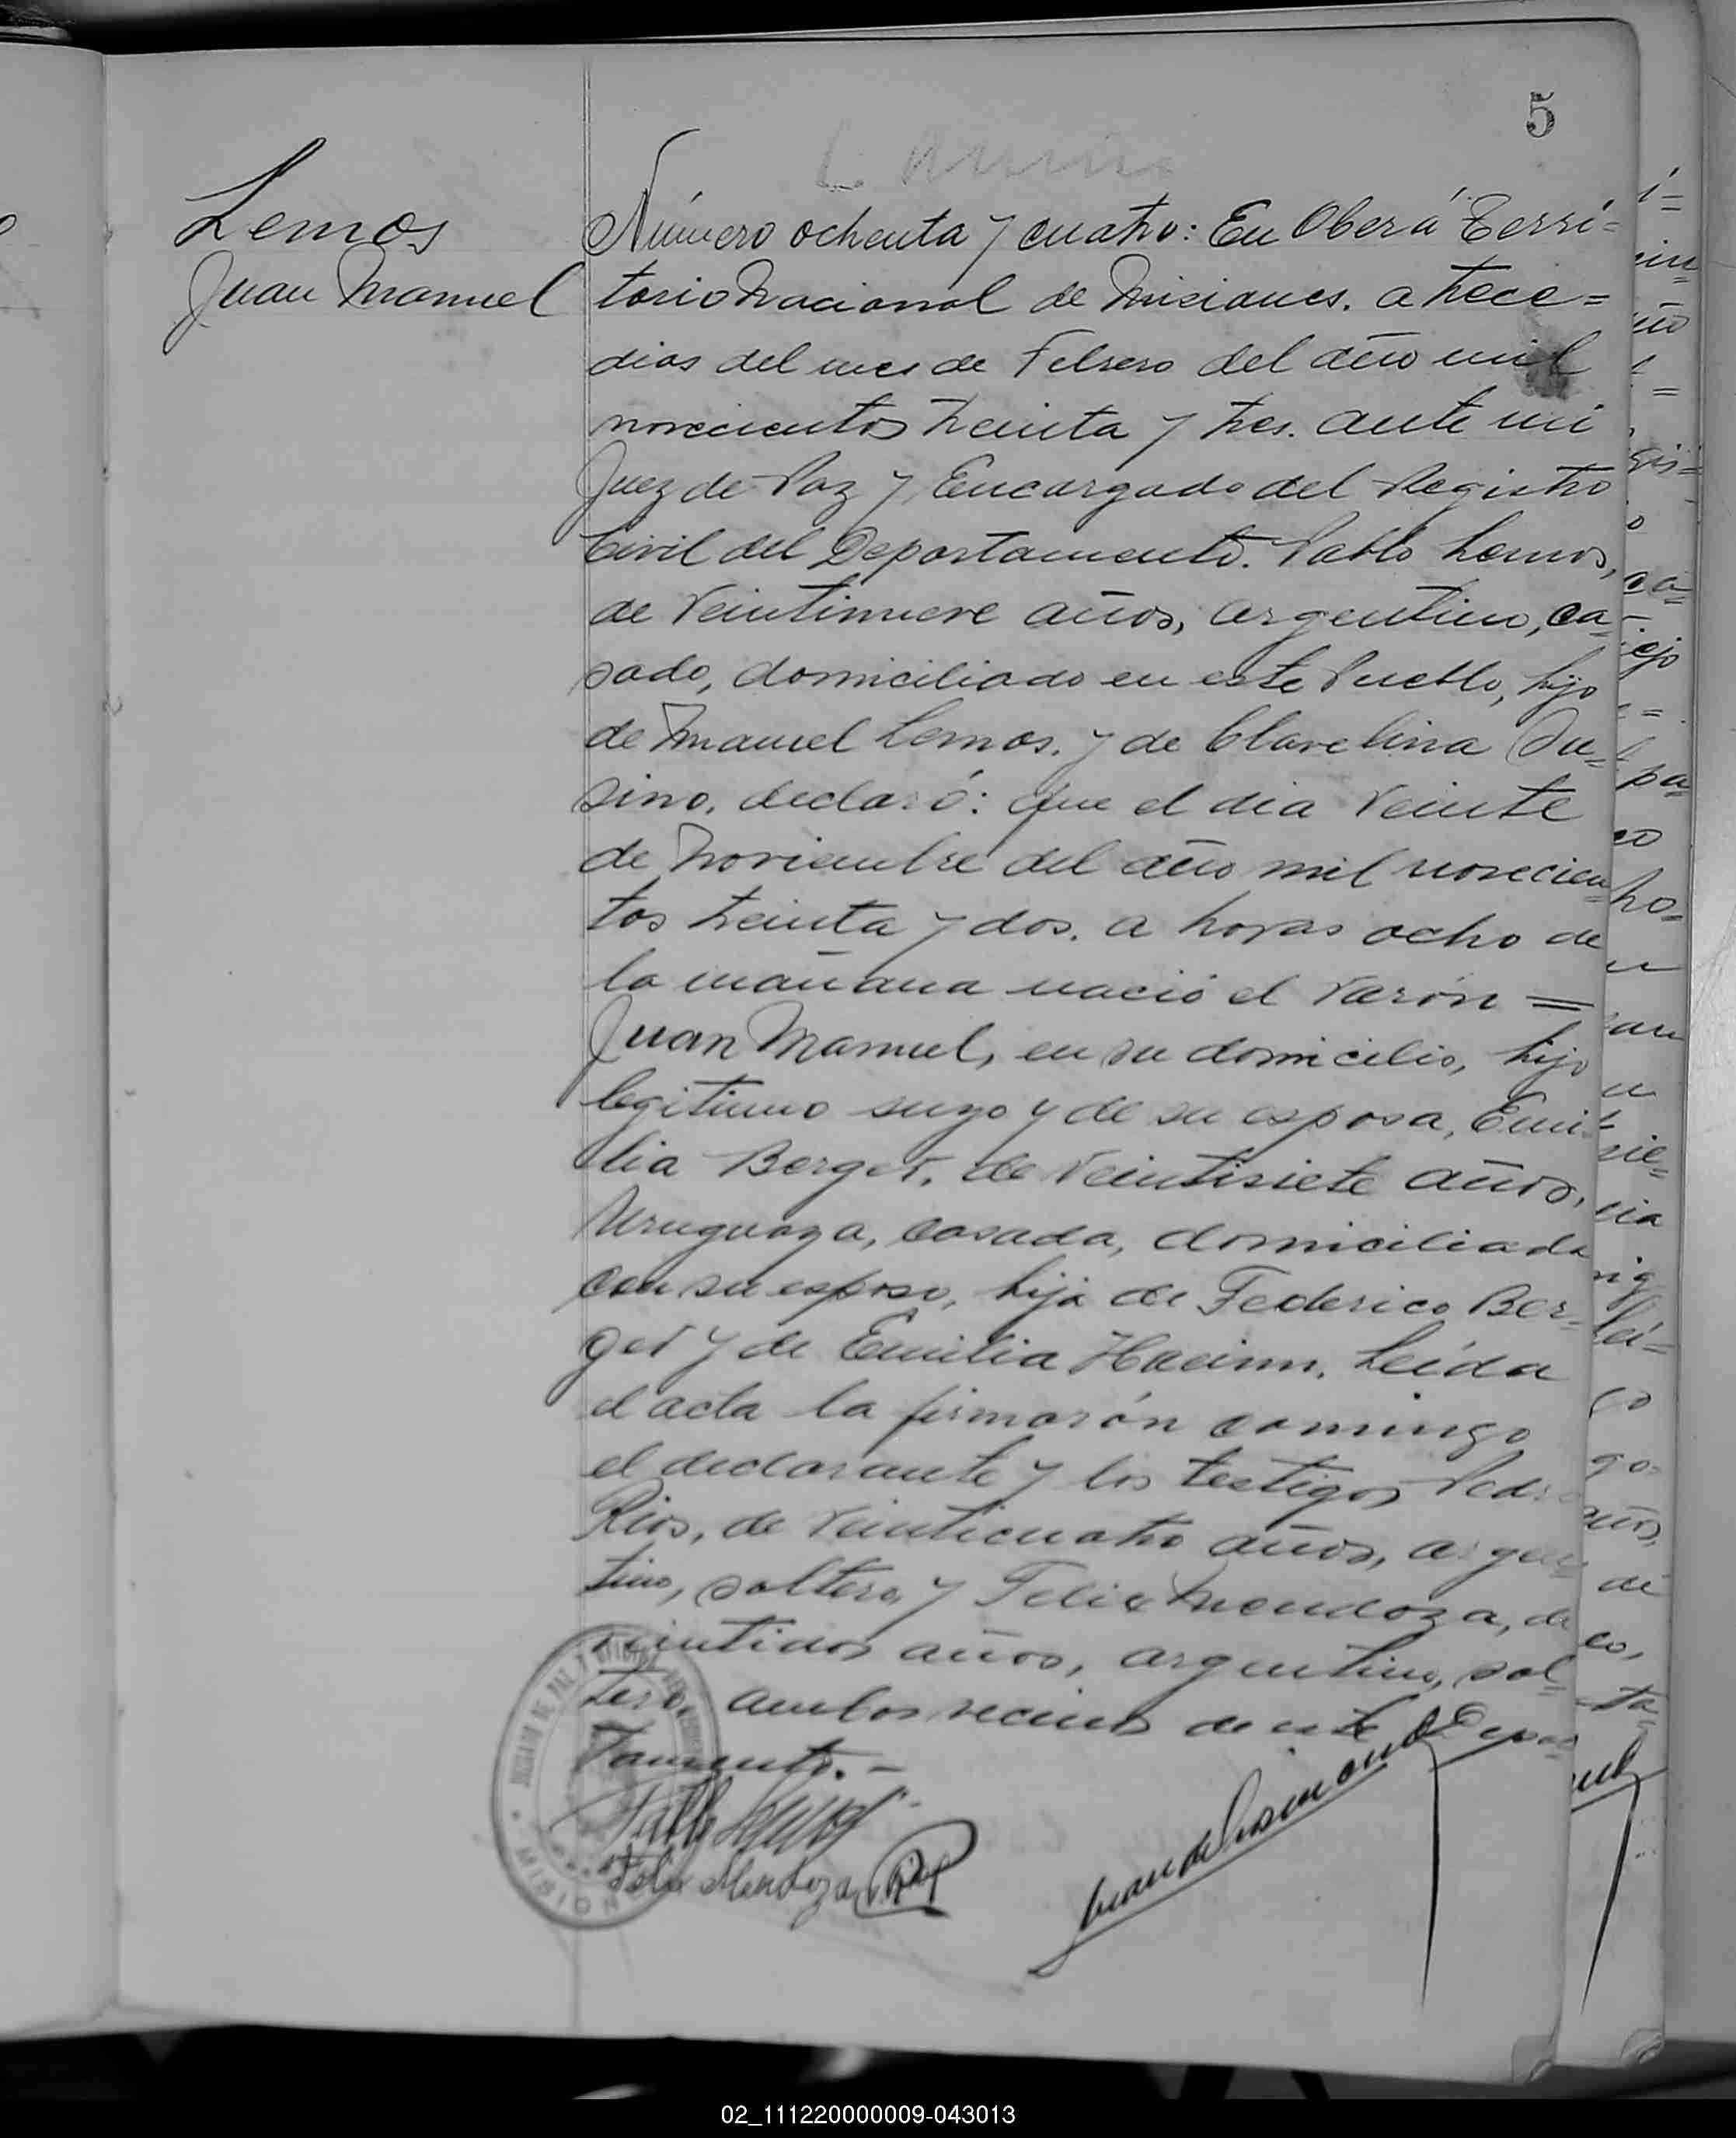 5
Lemos
Juan Manuel
Número ochenta y cuatro: En Oberá Terri=
torio Nacional de Misiones. a trece=
dias del mes de Febrero del año mil
novecientos treinta y tres. ante mi
Juez de Paz y Encargado del Registro
Civil del Departamento. Pablo Lemos,
de veintinueve años, argentino, ca-
sado, domiciliado en este Pueblo, hijo
de Manuel Lemos. y de Clavelina Su-
sino, declaró: Que el dia veinte
de Noviembre del año mil novecien-
tos treinta y dos. a horas ocho de
la mañana nació el varón =
Juan Manuel, en su domicilio, hijo
legitimo suyo y de su esposa, Emi-
lia Berget, de veintisiete años,
Uruguaya, casada, domiciliada
con su esposo, hija de Federico Ber-
get y de Emilia Haeinn. Leída
el acta la firmarón comingo
el declarante y los testigos Pedro
Rios, de veinticuatro años, argen-
tino, soltero, y Felix Mendoza, de
veintidos años, argentino, sol-
tero, ambos vecinos de este Depar-
tamento.-
Pablo Lemos
Felix Mendoza P. Rios
MISION
02_111220000009-043013